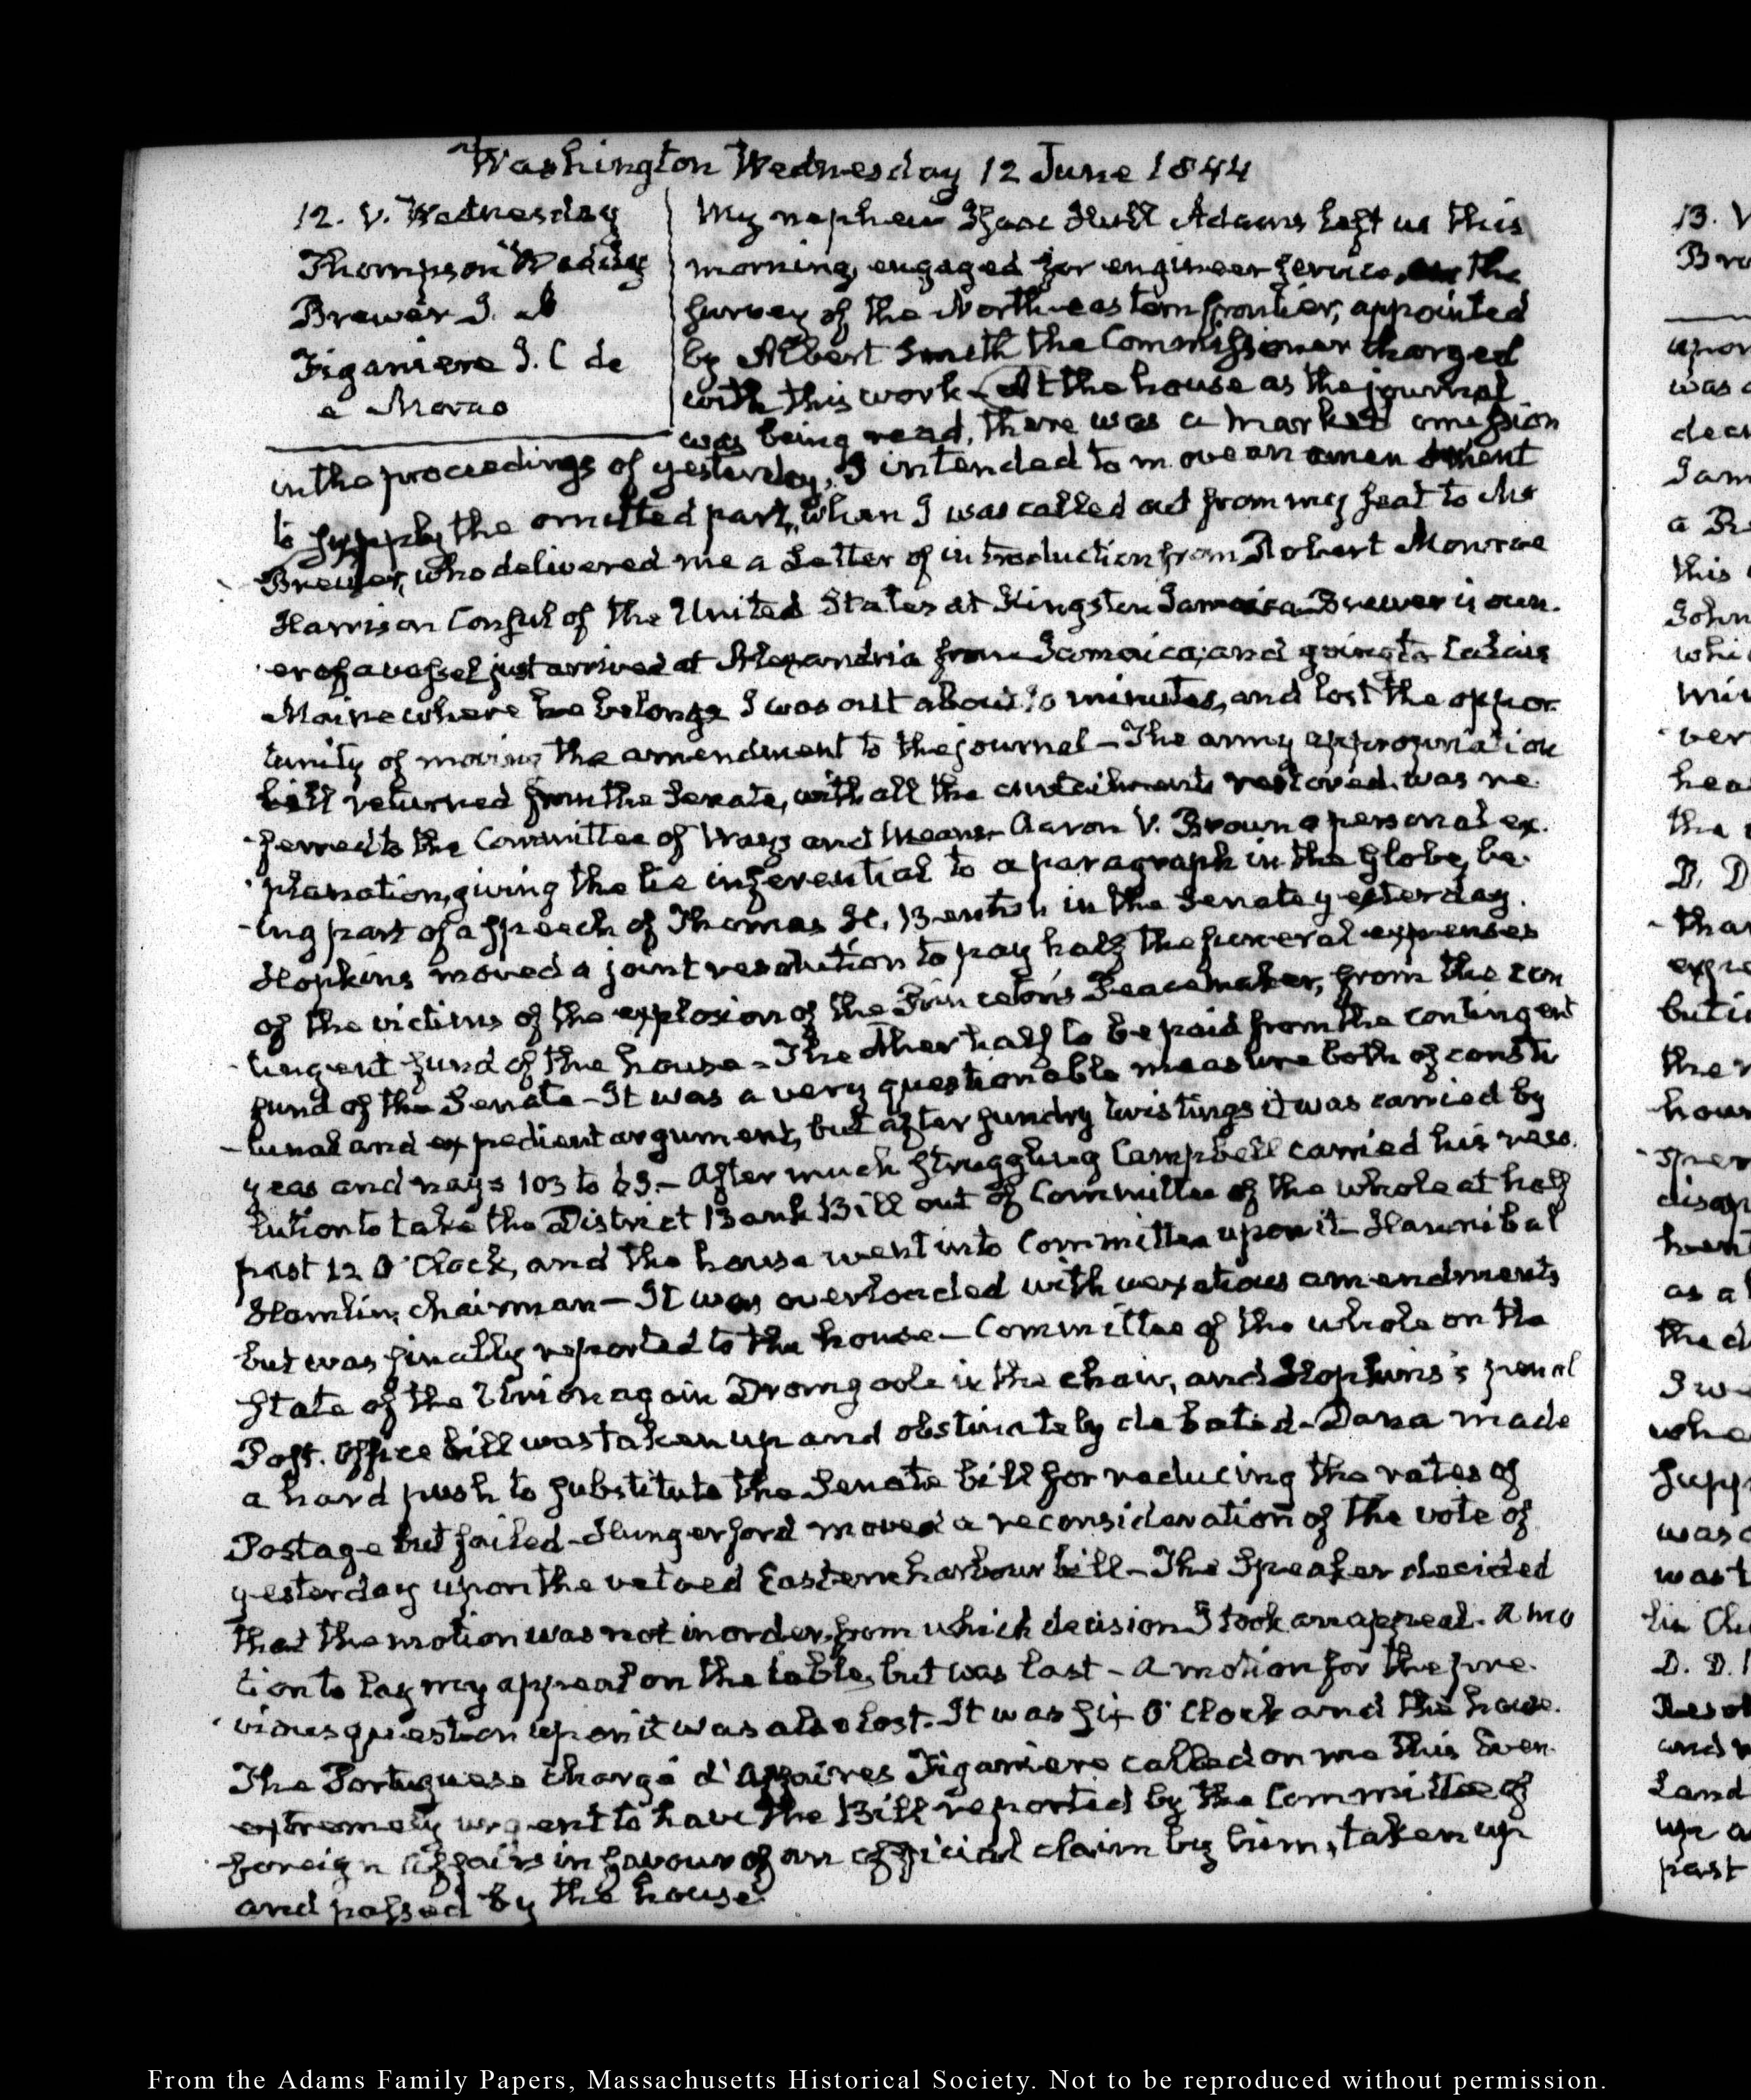 Washington Wednesday 12 June 1844
12. V. Wednesday
Thompson Waddy
Brewer J.
Figaniere J. C de
e Morao
My nephew Isaac Hull Adams left us this
morning, engaged for engineer service, the
survey of the North-eastern frontier, appointed
by Albert Smith the Commissioner charged
with this work – At the house as the journal
was being read, there was a marked omission
in the proceedings of yesterday, I intended to move an amendment
to supply the omitted part, when I was called out from my seat to Mr
Brewer, who delivered me a Letter of introduction from Robert Monroe
Harrison Consul of the United States at Kingston Jamaica Brewer is own-
er of a vessel just arrived at Alexandria from Jamaica, and going to Calais
Maine where he belongs I was out about 10 minutes, and lost the oppor-
tunity of moving the amendment to the journal – The army appropriation
bill returned from the Senate, with all the curtailments restored was re-
ferred to the Committee of Ways and Means – Aaron V. Brown a personal ex-
planation, giving the lie inferential to a paragraph in the Globe, be-
ing part of a speech of Thomas H. Benton in the Senate yesterday.
Hopkins moved a joint resolution to pay half the funeral expenses
of the victims of the explosion of the Princeton's Peacemaker, from the con
tingent fund of the house – The other half to be paid from the contingent
fund of the Senate – It was a very questionable measure both of consti
tunal and expedient argument, but after sundry twistings it was carried by
yeas and nays 103 to 63. – After much struggling Campbell carried his reso-
lution to take the District Bank Bill out of Committee of the whole at half
past 12 O'Clock, and the house went into Committee upon it – Hannibal
Hamlin, chairman – It was overloaded with vexatious amendments
but was finally reported to the house – Committee of the whole on the
State of the Union again Dromgoole in the chair, and Hopkins's penal
Post. Office bill was taken up and obstinately debated – Dana made
a hard push to substitute the Senate bill for reducing the rates of
Postage but failed – Hungerford moved a reconsideration of the vote of
yesterday upon the vetoed Eastern harbour bill – The Speaker decided
that the motion was not in order, from which decision I took an appeal. A mo
tion to lay my appeal on the table, but was lost – A motion for the pre-
vious question upon it was also lost. It was six O'Clock and the house.
The Portuguese chargé d'Affaires Figaniere called on me this Even
extremely urgent to have the Bill reported by the Committee of
foreign Affairs in favour of an official claim by him, taken up
and passed by the house
13. V
Bre
upon
was
dec
Jam
a Br
this
John
whi
Min
ver
hea
the
D. D
tha
expre
but i
the r
hour
disap
hem
as a
the d
I we
whe
supp
was
was t
D. D.
Resol
and
Land
up a
past
From the Adams Family Papers, Massachusetts Historical Society. Not to be reproduced without permission.